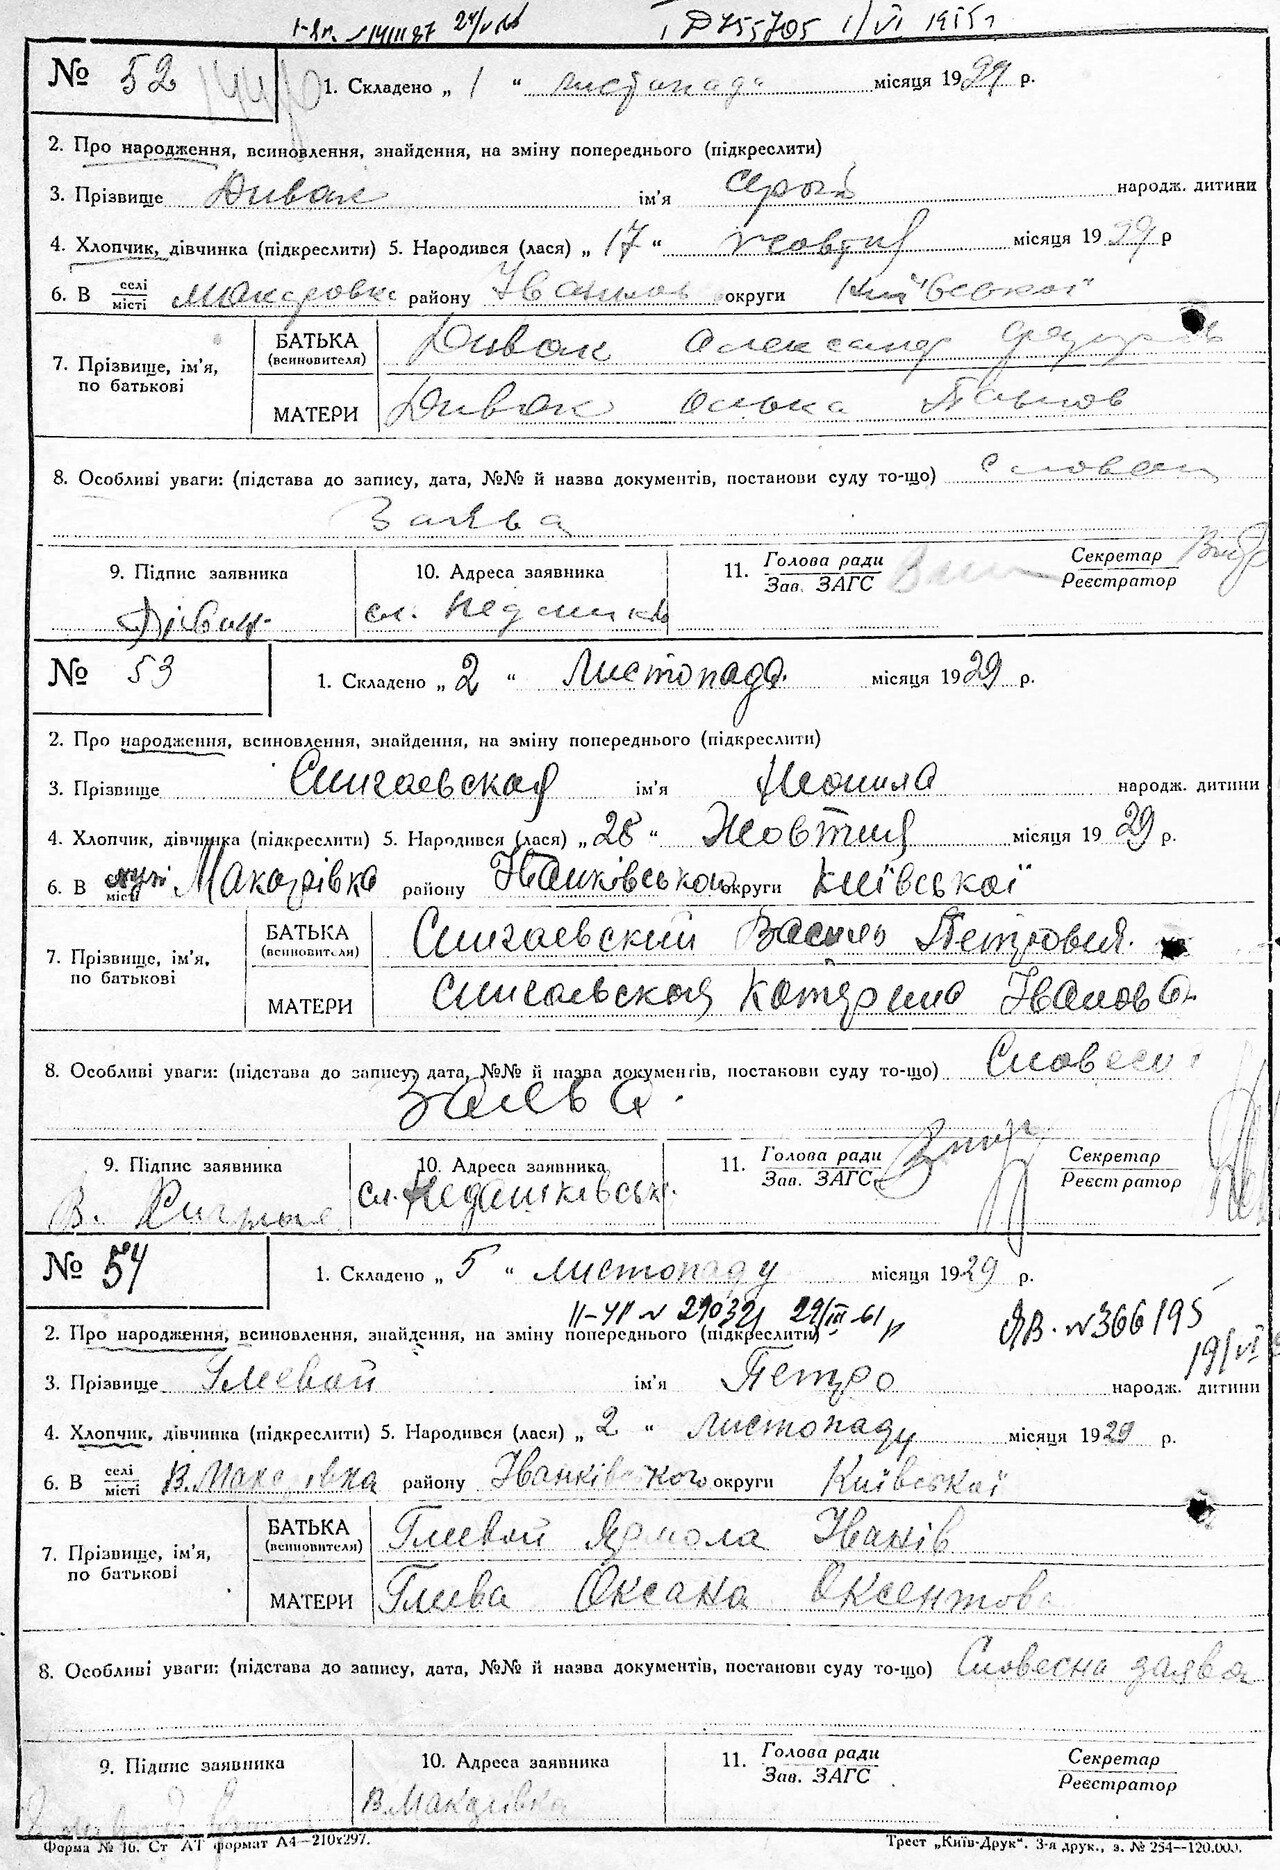 24/V
I 755705 1/VI 1955 г
№ 52 1. Складено „ 1 “ листопада місяця 1929 р.
2. Про народження, всиновлення, знайдення, на зміну попереднього (підкреслити)
3. Прізвище Дивак ім'я народж. дитини
4. Хлопчик, дівчинка (підкреслити) 5. Народився (лася) „ 17 “ жовтня місяця 1929 р
6. В селі місті району округи Київської
7. Прізвище, ім'я, по батькові
БАТЬКА (всиновителя) Дивак Олександр
МАТЕРИ Дивак Олька
8. Особливі уваги: (підстава до запису, дата, №№ й назва документів, постанови суду то-що)
Заява
9. Підпис заявника 10. Адреса заявника 11. Голова ради Зав. ЗАГС Секретар Реєстратор
сл.
№ 53 1. Складено „ 2 “ Листопада місяця 1929 р.
2. Про народження, всиновлення, знайдення, на зміну попереднього (підкреслити)
3. Прізвище Сингаевская ім'я Неонила народж. дитини
4. Хлопчик, дівчинка (підкреслити) 5. Народився (лася) „ 28 “ Жовтня місяця 1929 р.
6. В місті Макарівка району Іванківського округи Київської
7. Прізвище, ім'я, по батькові
БАТЬКА (всиновителя) Сингаевский Василь Петровия.
МАТЕРИ Сингаевская Катерина Іванова
8. Особливі уваги: (підстава до запису, дата, №№ й назва документів, постанови суду то-що) Словесн
Заява.
9. Підпис заявника 10. Адреса заявника 11. Голова ради Зав. ЗАГС Секретар Реєстратор
В. сл.
№ 54 1. Складено „ 5 “ листопаду місяця 1929 р.
29/III-61 р №366195
2. Про народження, всиновлення, знайдення, на зміну попереднього (підкреслити)
19/VI
3. Прізвище Глевой ім'я Петро народж. дитини
4. Хлопчик, дівчинка (підкреслити) 5. Народився (лася) „ 2 “ листопаду місяця 1929 р.
6. В селі місті В.Макарівка району Іванківського округи Київської
7. Прізвище, ім'я, по батькові
БАТЬКА (всиновителя) Глевой Ярмола Іванів
МАТЕРИ Глева Оксана Оксентова
8. Особливі уваги: (підстава до запису, дата, №№ й назва документів, постанови суду то-що) Словесна заява
9. Підпис заявника 10. Адреса заявника 11. Голова ради Зав. ЗАГС Секретар Реєстратор
В.Макарівка
Форма № 1б. Ст АТ формат А4—210х297. Трест „Київ-Друк“. 3-я друк., з. № 254—120.000.